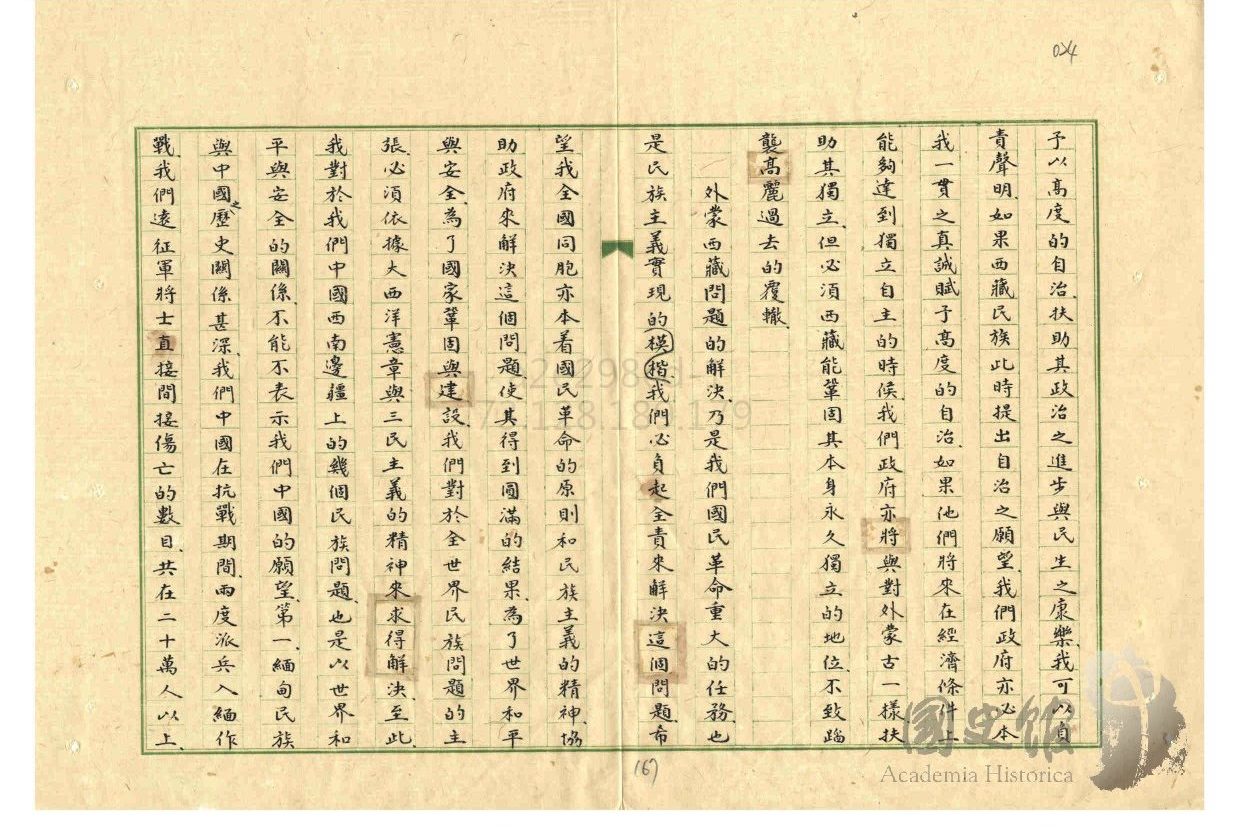 024
予以高度的自治、扶助其政治之進步與民生之康樂、我可以負
責聲明、如果西藏民族此時提出自治之願望、我們政府亦必本
我一貫之真誠賦予高度的自治、如果他們將來在經濟條件上
能夠達到獨立自主的時候、我們政府亦將與對外蒙古一樣、扶
助其獨立、但必須西藏能鞏固其本身永久獨立的地位、不致蹈
襲高麗過去的覆轍、
外蒙西藏問題的解決、乃是我們國民革命重大的任務、也
是民族主義實現的模楷、我們必負起全責來解決這個問題、希
望我全國同胞亦本着國民革命的原則和民族主義的精神、協
助政府來解決這個問題、使其得到圓滿的結果、為了世界和平
與安全、為了國家鞏固與建設、我們對於全世界民族問題的主
張、必須依據大西洋憲章與三民主義的精神來求得解決、至此、
我對於我們中國西南邊疆上的幾個民族問題、也是以世界和
平與安全的關係、不能不表示我們中國的願望、第一、緬甸民族
與中國之歷史關係甚深、我們中國在抗戰期間、兩度派兵入緬作
戰、我們遠征軍將士直接間接傷亡的數目、共在二十萬人以上、
167
國史館
Academia Historica